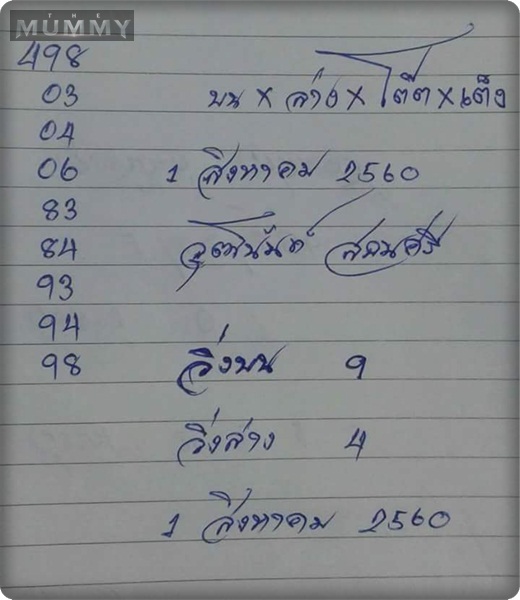 THE
MUMMY
498
03 บน x ล่าง x โต๊ด x เต็ง
04
06 1 สิงหาคม 2560
83
84
93
94
98 วิ่งบน 9
วิ่งล่าง 4
1 สิงหาคม 2560